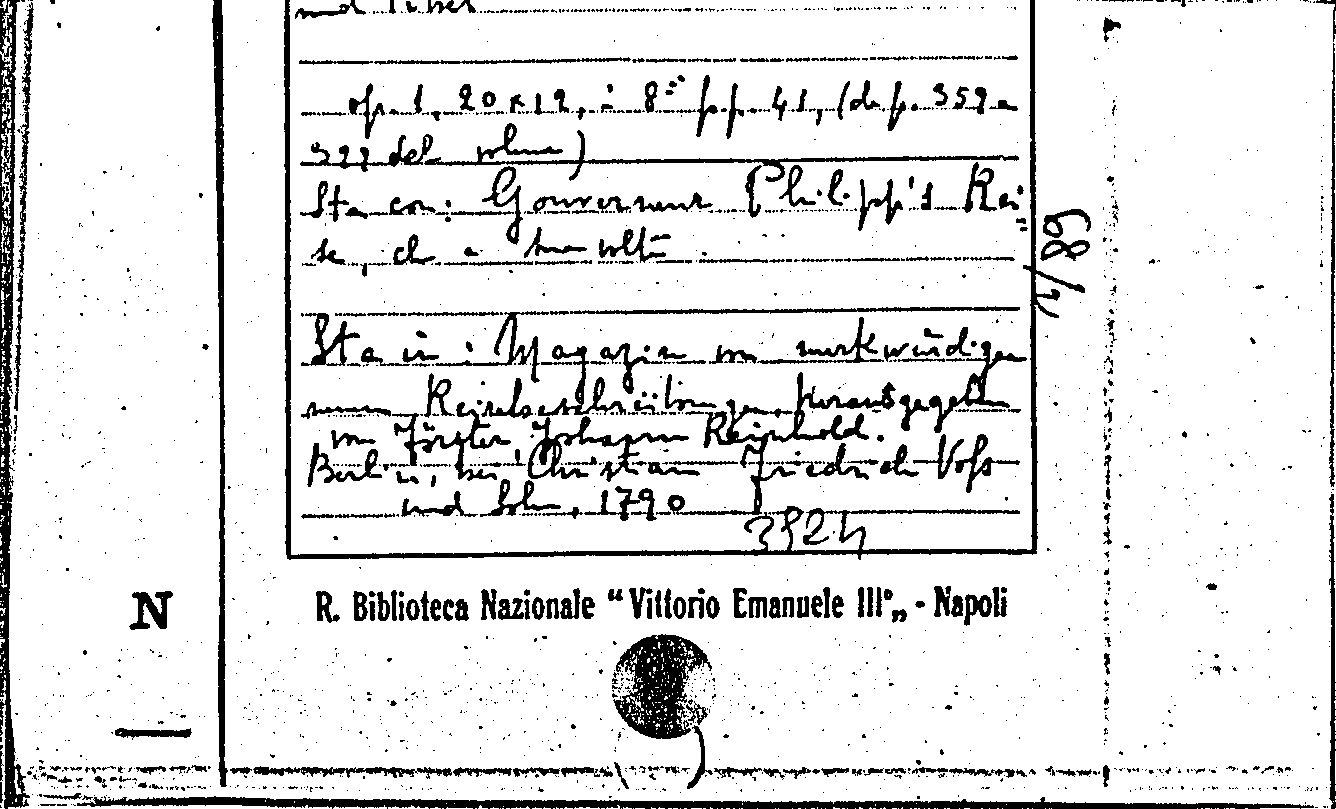 und Tibet
op. 1, 20x12, in 8° pp. 41, (da p. 359 a
399 del volume)
Sta con: Gouverneur Philipp's Rei=
se, che a sua volta
Sta in: Magazin von merkwürdigen
neuen Reisebeschreibungen. Herausgegeben
von Förster, Johann Reinhold.
Berlin, bei Christian Friedrich Voss
und Sohn, 1790
R. Biblioteca Nazionale “Vittorio Emanuele III°„ - Napoli
N